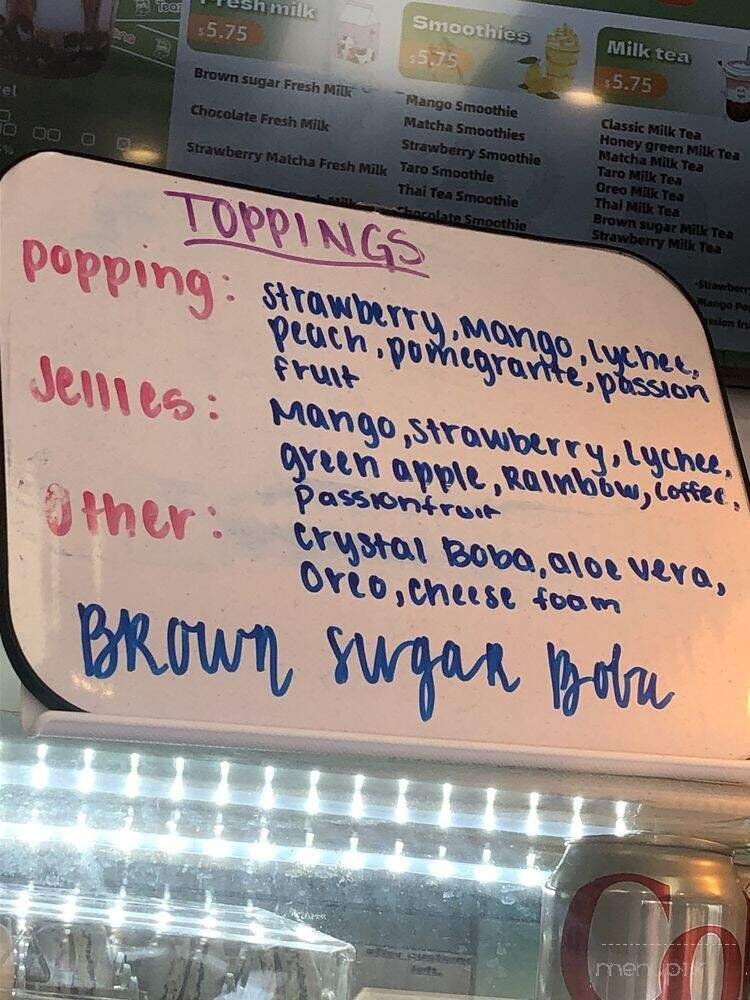 Fresh milk
$5.75
Brown sugar Fresh Milk
Chocolate Fresh Milk
Strawberry Matcha Fresh Milk
Smoothies
$5.75
Mango Smoothie
Matcha Smoothies
Strawberry Smoothie
Taro Smoothie
Thai Tea Smoothie
Chocolate Smoothie
Milk tea
$5.75
Classic Milk Tea
Honey green Milk Tea
Matcha Milk Tea
Taro Milk Tea
Oreo Milk Tea
Thai Milk Tea
Brown sugar Milk Tea
Strawberry Milk Tea
TOPPINGS
popping:
strawberry, Mango, lychee,
peach, pomegrante, passion
fruit
Jellies:
Mango, strawberry, lychee,
green apple, Rainbow, coffee,
passionfruit
Other:
crystal Boba, aloe vera,
Oreo, cheese foam
Brown sugar Boba
Co
menupix